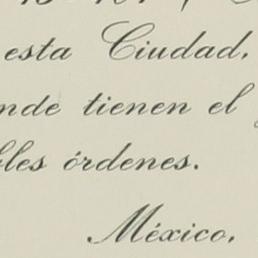 esta Ciudad,
nde tienen el
bles órdenes.
México,